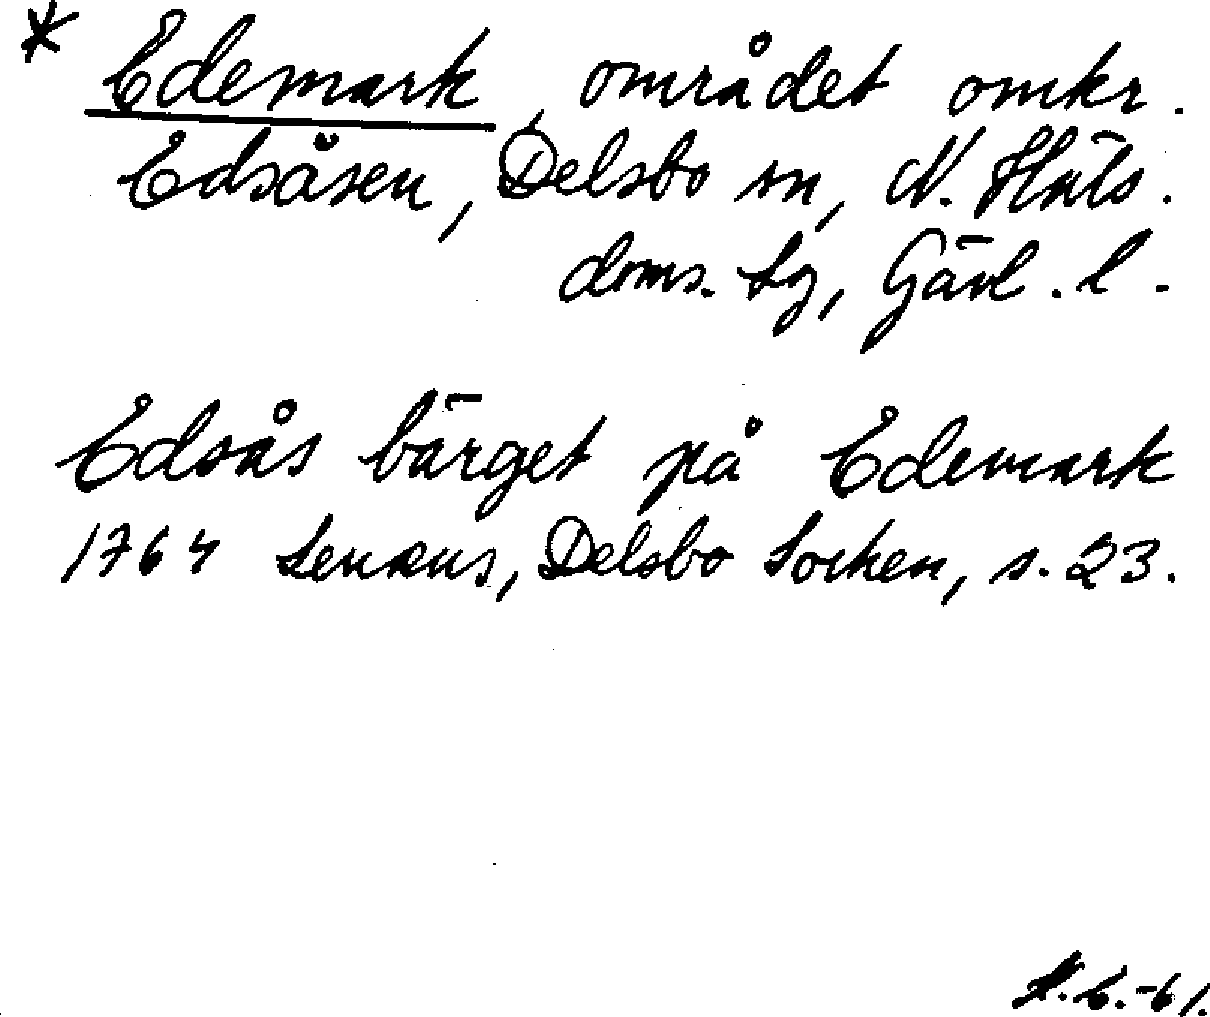 * Edemark, området omkr.
Edsåsen, Delsbo sn, N. Häls.
doms. sg, Gävl. l.
Edsås bärget på Edemark
1764 Lenæus, Delsbo Socken, s. 23.
-61.